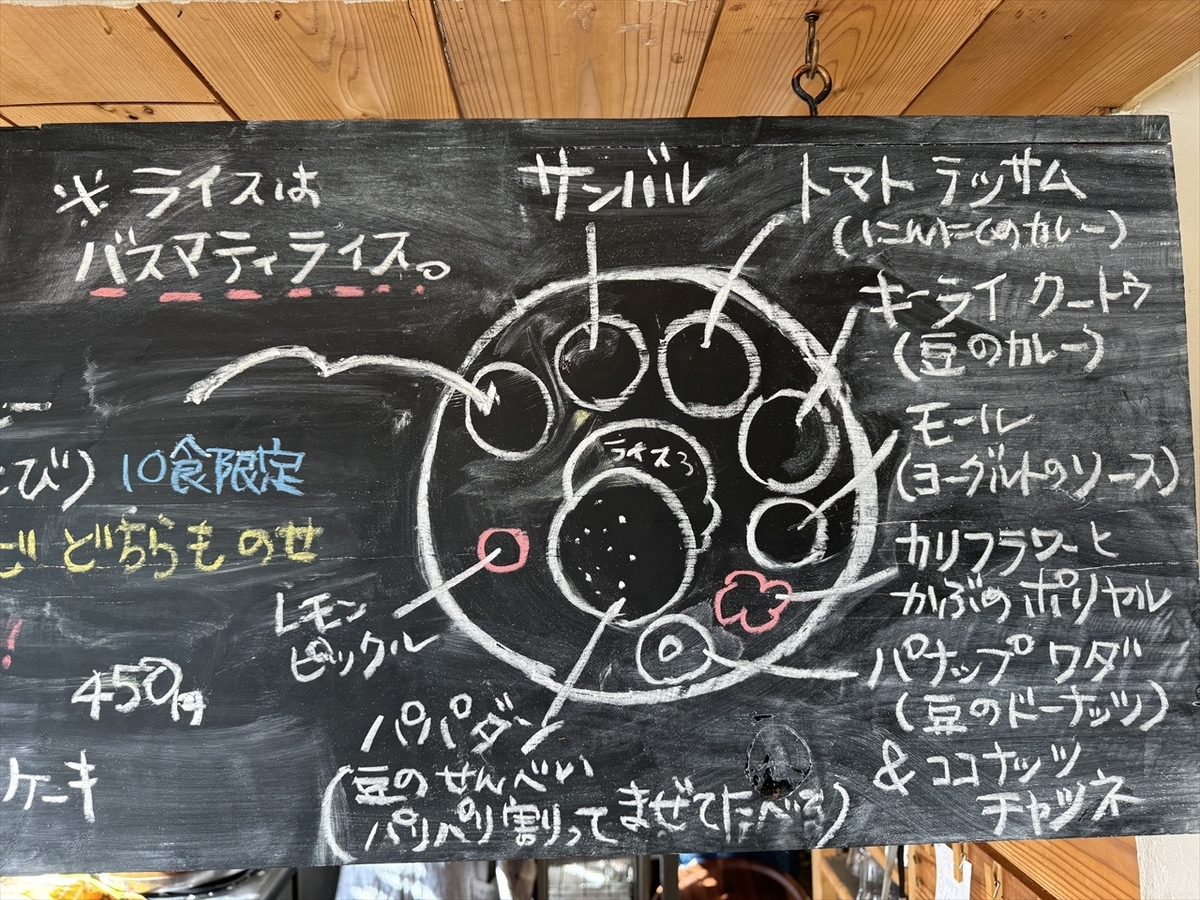 ※ ライスは
バスマティライス。
ー
とび) 10食限定
ど どちらものせ
!
450円
ケーキ
サンバル
トマト ラッサム
(にんにくのカレー)
キーライ クートゥ
(豆のカレー)
モール
(ヨーグルトのソース)
カリフラワーと
かぶの ポリヤル
パナップ ワダ
(豆のドーナッツ)
& ココナッツ
チャツネ
ライス
レモン
ピックル
パパダン
(豆のせんべい
パリパリ割ってまぜてたべる)